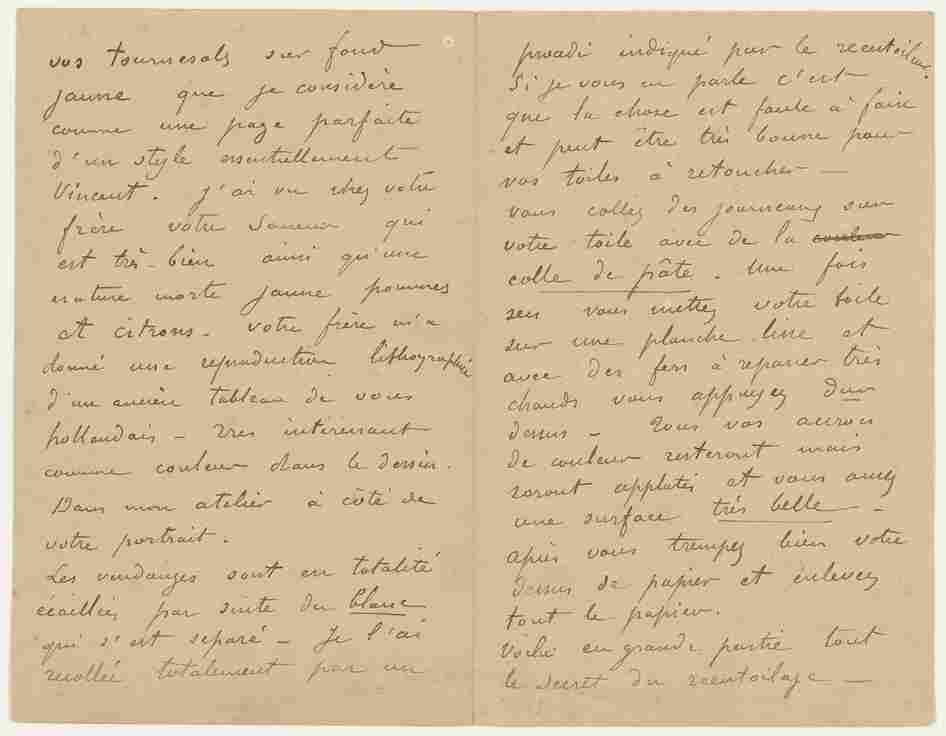 vos tournesols sur fond
jaune que je considère
comme une page parfaite
d'un style essentiellement
Vincent. J'ai vu chez votre
frère votre Semeur qui
est très-bien ainsi qu'une
nature morte jaune pommes
et citrons - Votre frère m'a
donné une reproduction lithographiée
d'un ancien tableau de vous
hollandais - très intéressant
comme couleur dans le dessin.
Dans mon atelier à côté de
votre portrait.
Les vendanges sont en totalité
écaillées par suite du blanc
qui s'est separé - Je l'ai
recollée totalement par un
procédé indiqué par le rentoileur.
Si je vous en parle c'est
que la chose est facile à faire
et peut être très bonne pour
vos toiles à retoucher -
vous collez des journeaux sur
votre toile avec de la couleur
colle de pâte. Une fois
sec vous mettez votre toile
sur une planche lisse et
avec des fers à repasser très
chauds vous appuyez dur
dessus - Tous vos accrocs
de couleur resteront mais
seront applatis et vous aurez
une surface très belle -
après vous trempez bien votre
dessus de papier et enlevez
tout le papier.
Voilà en grande partie tout
le secret du rentoilage -